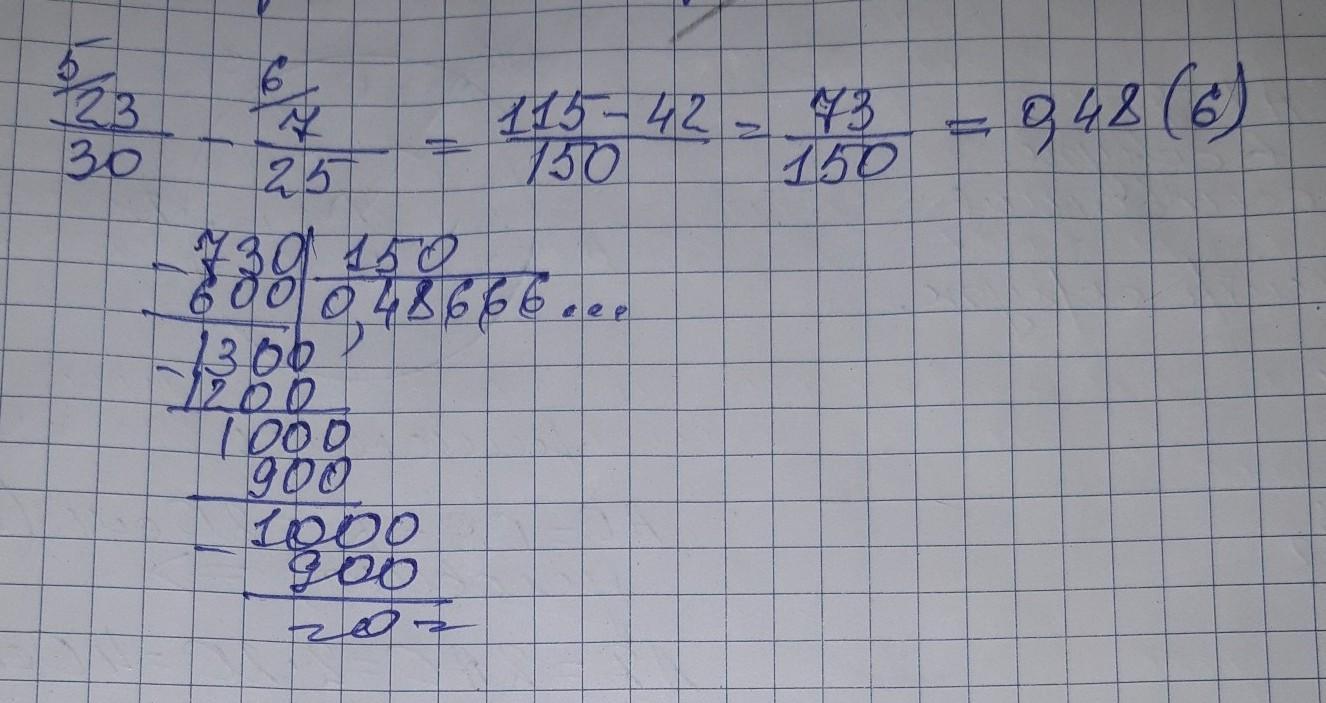 5/ 6/
23/30 - 7/25 = 115-42/150 = 73/150 = 0,48(6)
-730 | 150
600 | 0,48666...
-1300
1200
1000
900
-1000
900
-0-